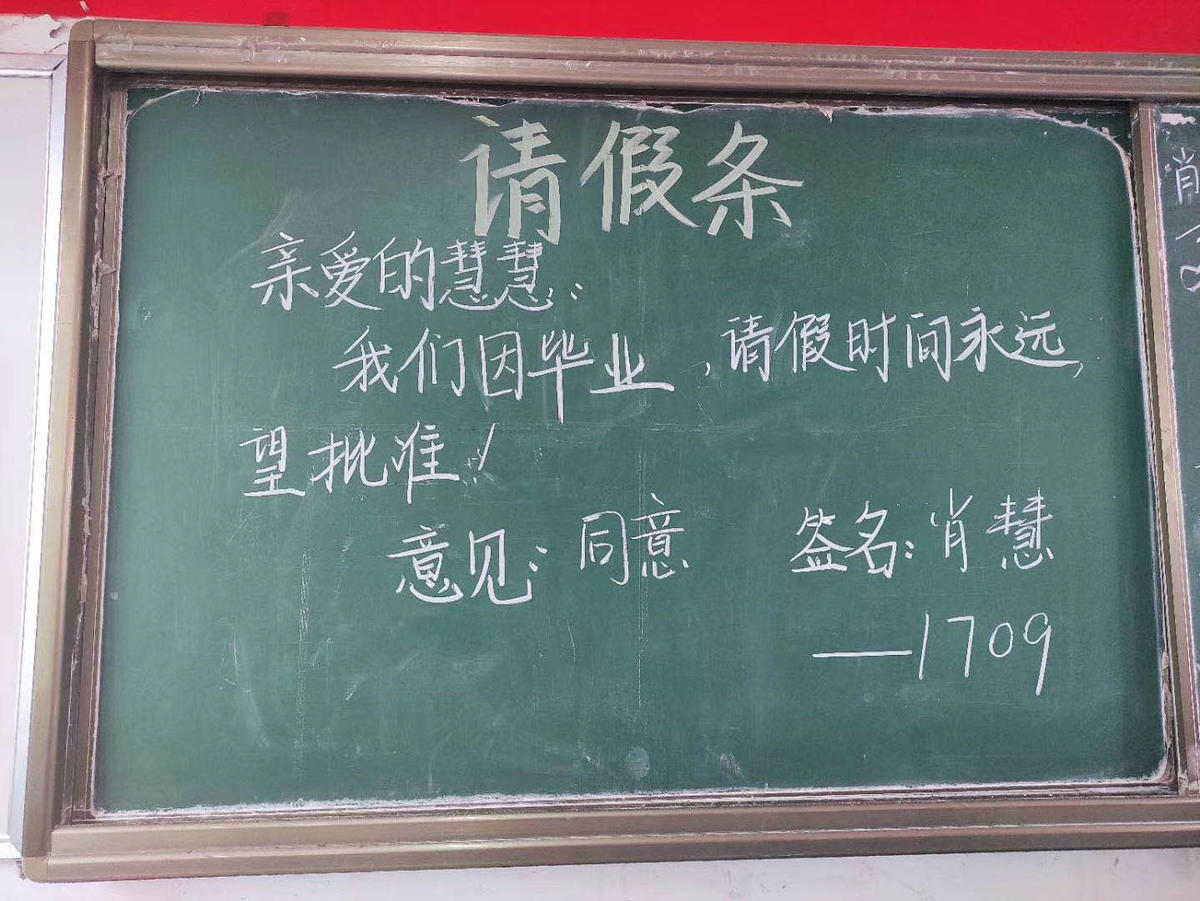 请假条
亲爱的慧慧：
我们因毕业，请假时间永远，
望批准！
意见：同意 签名：肖慧
——1709
肖